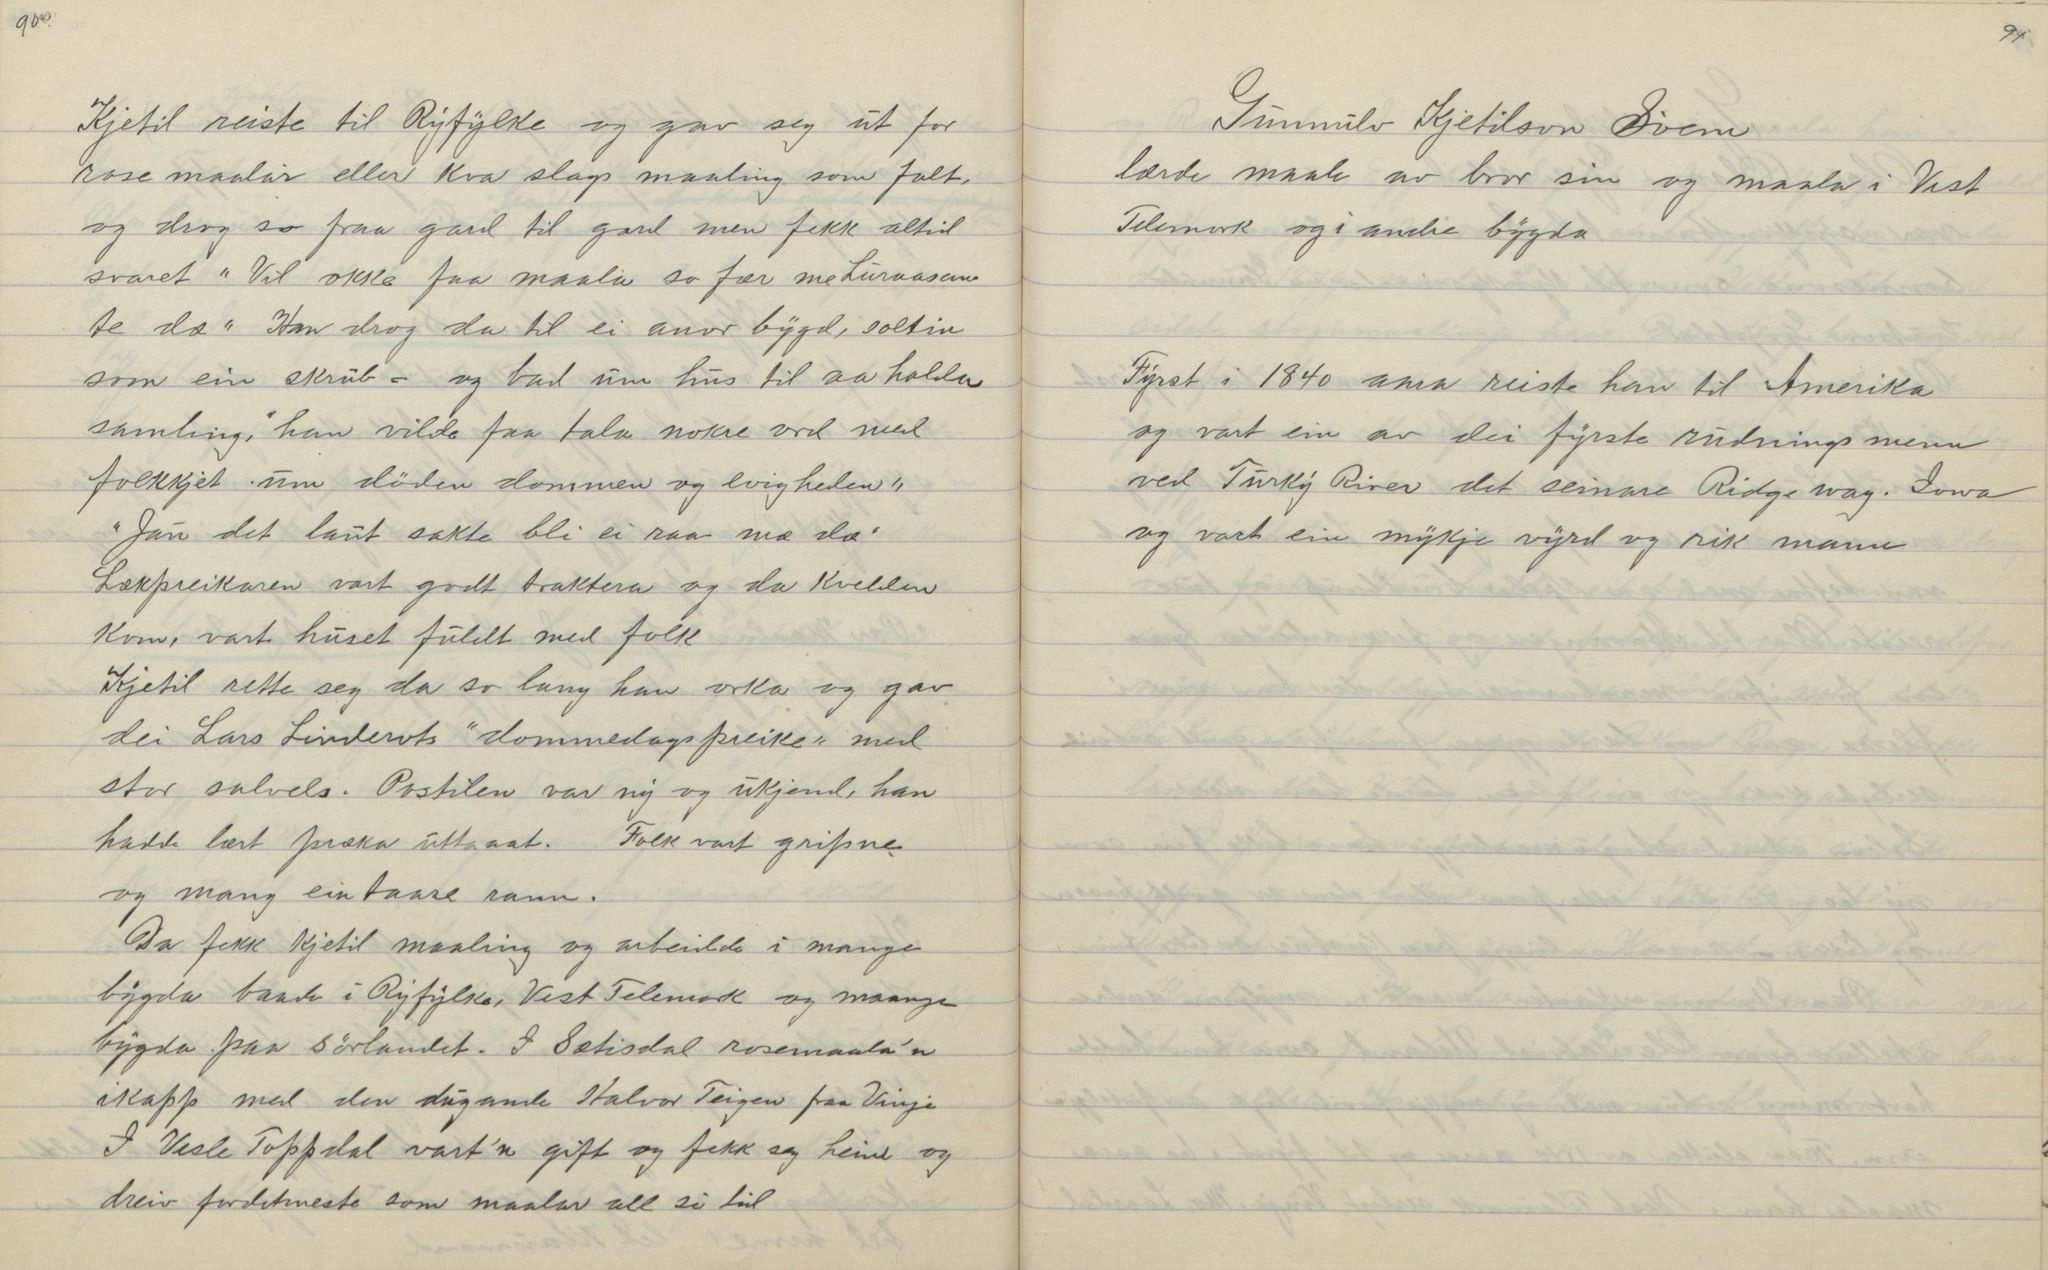 90.
Kjetil reiste til Ryfylke og gav seg ut for
rose maalar eller kva slags maaling som falt,
og drog so fraa gard til gard men fekk altid
svaret "Vil okke faa maala so fær me Luraasen
te dæ" Han drog da til ei anor bygd, soltin
som ein skrub - og bad um hus til aa holda
samling, "han vilde faa tala nokre ord med
folkkjet um döden dommen og evigheden"
"Jau det laut sakte bli ei raa mæ dæ"
Lækpreikaren vart godt traktera og da kvelden
kom, vart huset fuldt med folk
Kjetil rette seg da so lang han orka og gav
dei Lars Linderots "dommedagspreike" med
stor salvels. Postilen var ny og ukjend, han
hadde lært præka uttaaat. Folk vart gripne
og mang ein taare rann.
Da fekk Kjetil maaling og arbeidde i mange
bygda baade i Ryfylke, Vest Telemork og maange
bygda paa Sörlandet. I Sætisdal rosemaala'n
ikapp med den dugande Halvor Teigen fraa Vinje
I Vesle Toppdal vart'n gift og fekk seg heim og
dreiv fordetmeste som maalar all si tid
91
Gunnulv Kjetilson Sveen
lærde maala av bror sin og maala i Vest
Telemork og i andre bygda
Fyrst i 1840 aara reiste han til Amerika
og vart ein av dei fyrste rudningsmenn
ved Turky River det seinare Ridgeway. Iowa
og vart ein mykje vyrd og rik mann